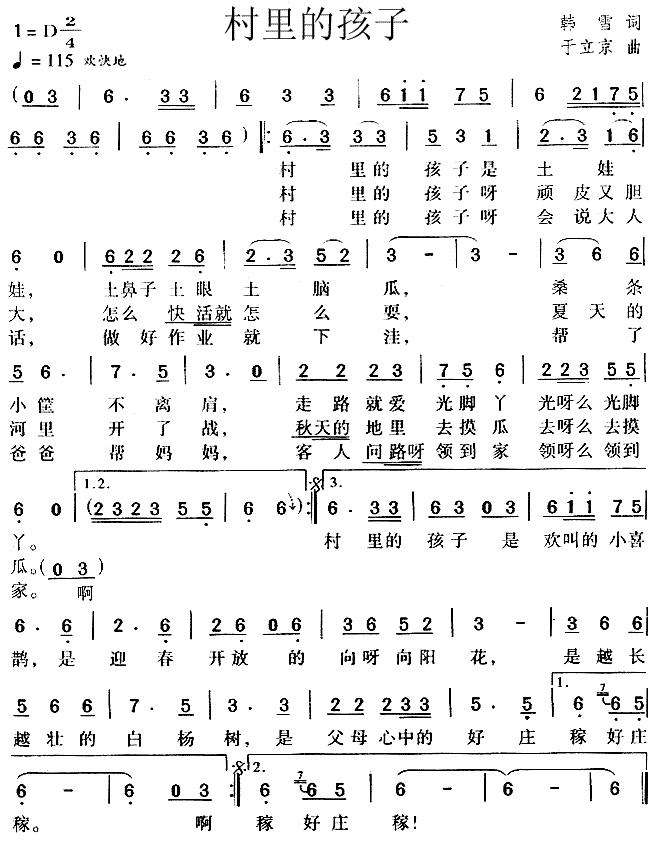 村里的孩子
1=D 2/4
韩雪 词
♩=115 欢快地
于立京 曲
(0 3 | 6· 3 3 | 6 3 3 | 6 i i 7 5 | 6 2 1 7 5 |
6 6 3 6 | 6 6 3 6 ) ‖: 6· 3 3 3 | 5 3 1 | 2· 3 1 6 |
村 里的 孩子是 土 娃
村 里的 孩子呀 顽皮又胆
村 里的 孩子呀 会说大人
6 0 | 6 2 2 2 6 | 2· 3 5 2 | 3 - | 3 - | 3 6 6 |
娃, 土鼻子土眼土 脑 瓜, 桑条
大, 怎么快活就怎 么 耍, 夏天的
话, 做好作业就 下 洼, 帮了
5 6· | 7· 5 | 3· 0 | 2 2 2 3 | 7 5 6 | 2 2 3 5 5 |
小筐 不离肩, 走路就爱 光脚丫 光呀么光脚
河里 开了战, 秋天的地里 去摸瓜 去呀么去摸
爸爸 帮妈妈, 客人问路呀 领到家 领呀么领到
1.2. 3.
6 0 | (2 3 2 3 5 5 | 6 6 ) :‖ 6· 3 3 | 6 3 0 3 | 6 i i 7 5 |
丫。 村 里的 孩子 是 欢叫的小喜
瓜。(0 3)
家。 啊
6· 6 | 2· 6 | 2 6 0 6 | 3 6 5 2 | 3 - | 3 6 6 |
鹊,是 迎 春 开放 的 向呀向阳 花, 是越长
5 6 6 | 7· 5 | 3· 3 | 2 2 2 3 3 | 5· 5 | 1. 6 6 5 |
越壮的 白杨树,是 父母心中的 好 庄 稼好庄
6 - | 6 0 3 :‖ 2. 6 6 5 | 6 - | 6 - | 6 0 ‖
稼。 啊 稼 好庄 稼!